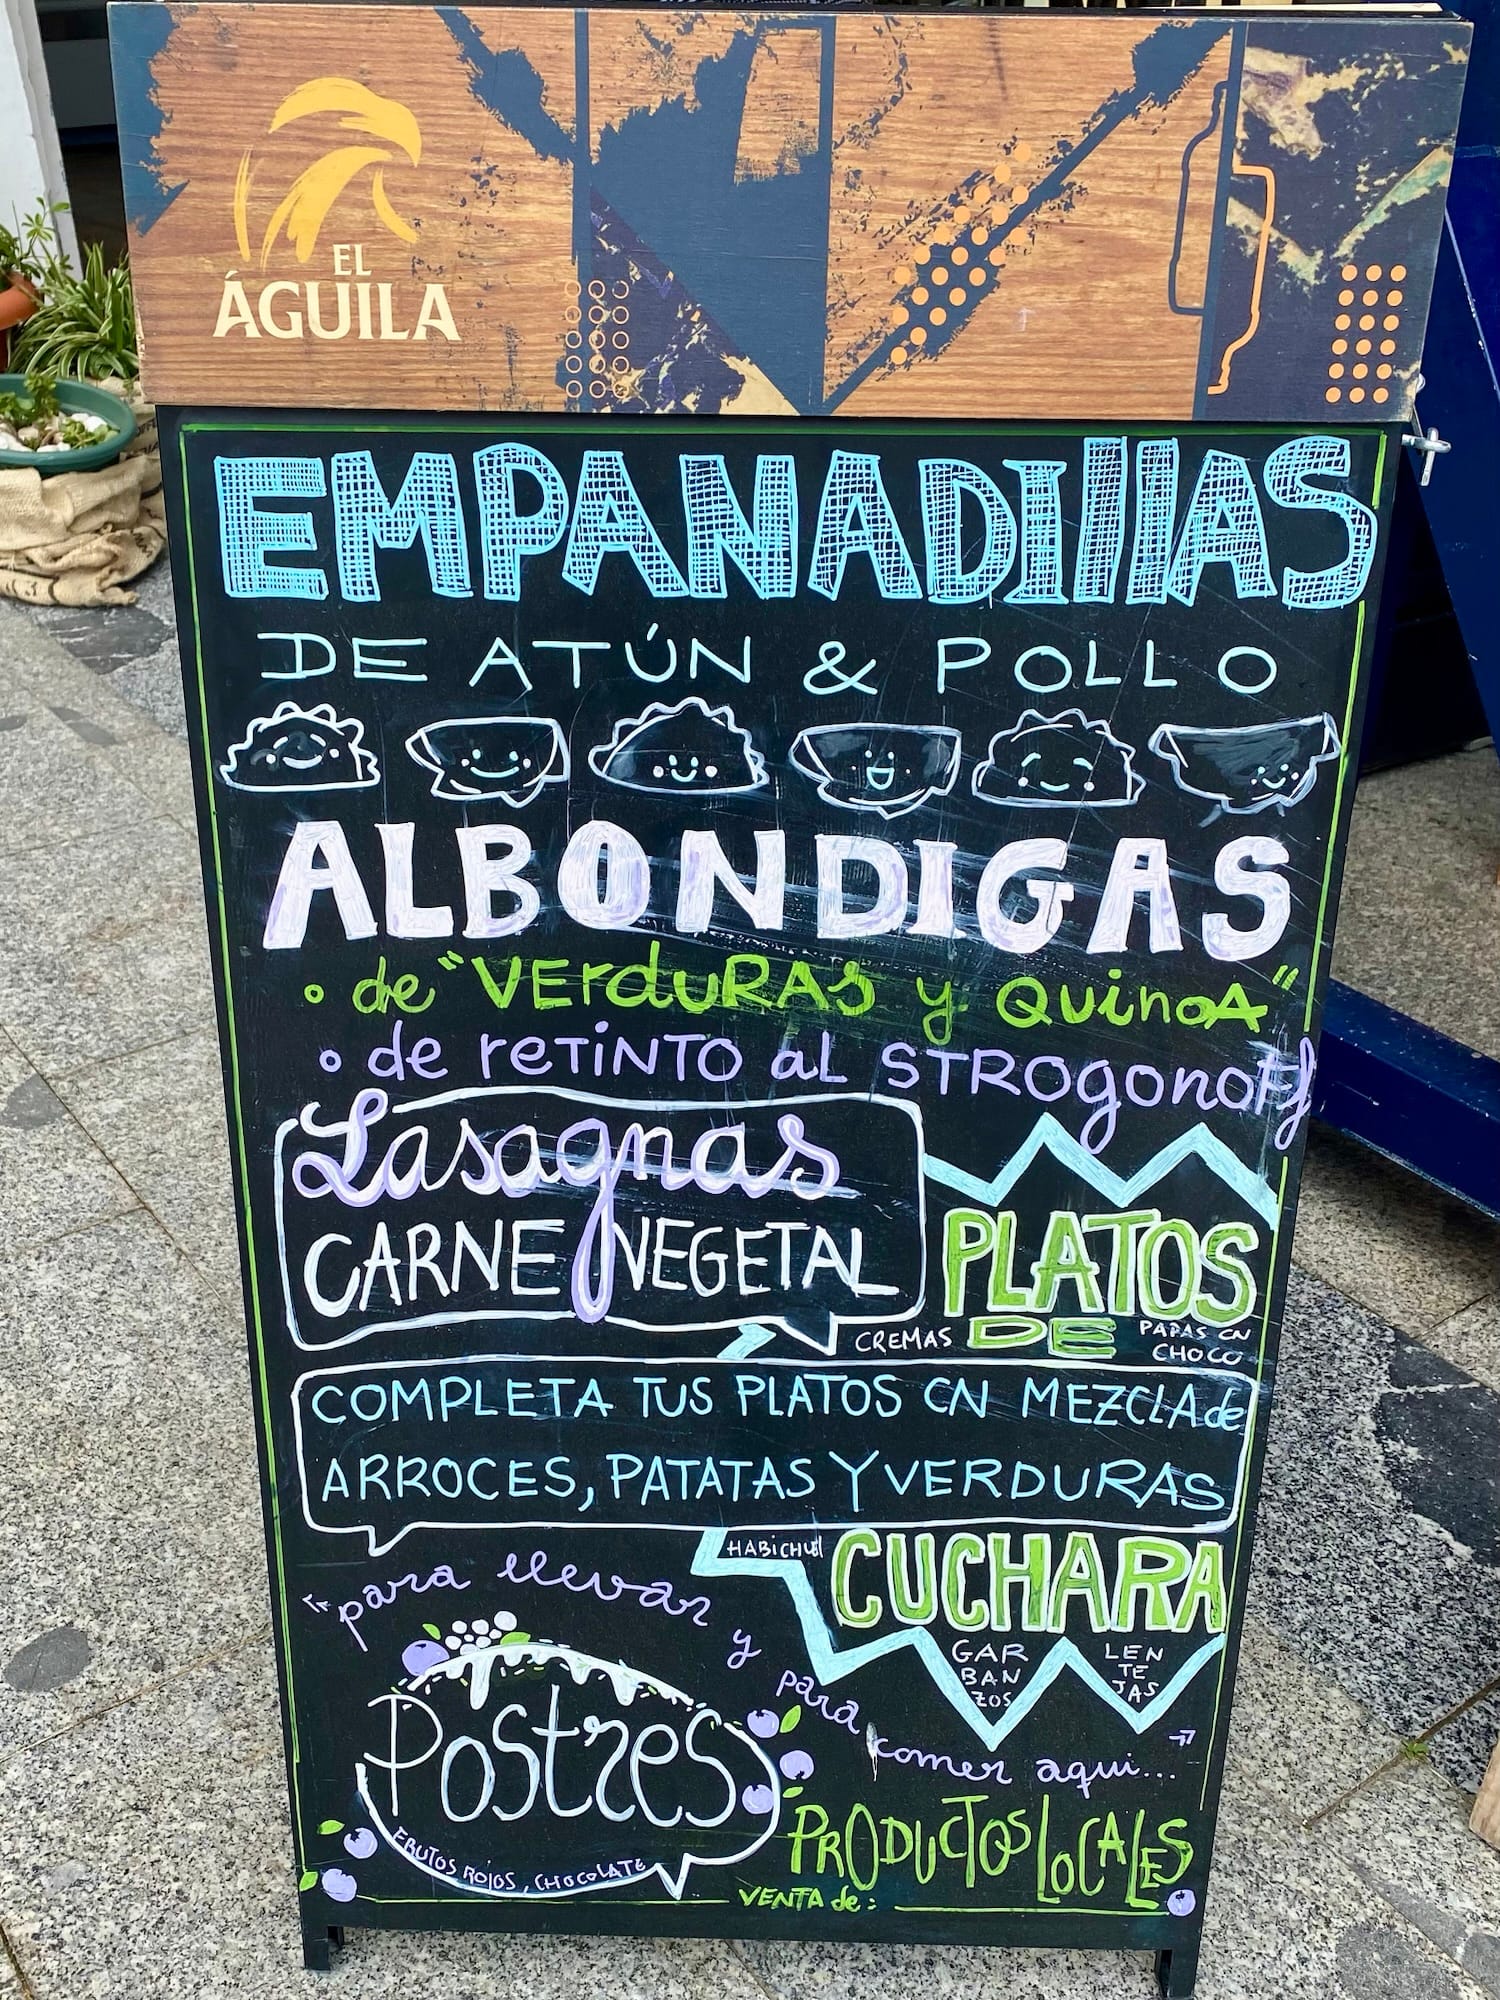 EL
ÁGUILA
EMPANADIllAS
DE ATÚN & POLLO
ALBONDIGAS
• de "VErduRAs y QuinoA"
• de reTiNTO al STROgonoff
Lasagnas
CARNE VEGETAL
PLATOS
DE
CREMAS
PAPAS CN
CHOCO
COMPLETA TUS PLATOS CN MEZCLA de
ARROCES, PATATAS Y VERDURAS
HABICHUEL
CUCHARA
GAR
BAN
ZOS
LEN
TE
JAS
"para llevar y para comer aqui..."
Postres
FRUTOS ROJOS, CHOCOLATE
VENTA de:
PRODUCTOS LOCALES